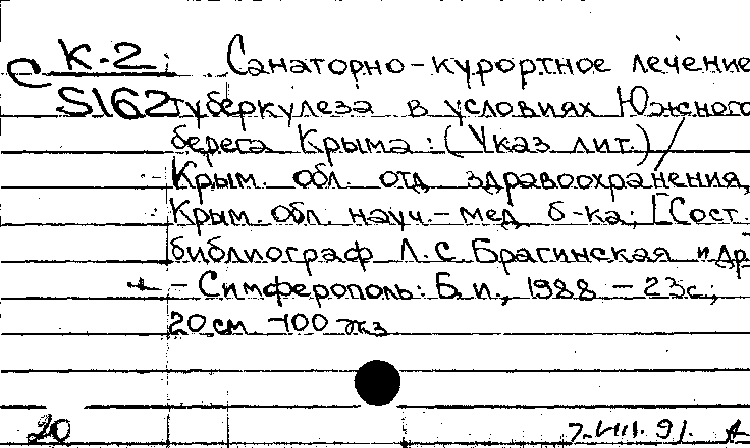 С К-2 Санаторно-курортное лечение
S162 туберкулеза в условиях Южного
берега Крыма: (Указ лит.) /
Крым. обл. отд здравоохранения,
Крым. обл. науч.-мед б-ка; [Сост.
библиограф Л.С Брагинская и др
- Симферополь: Б.и., 1988 - 23с.;
20 см. -100 экз
20 7.VIII.91.